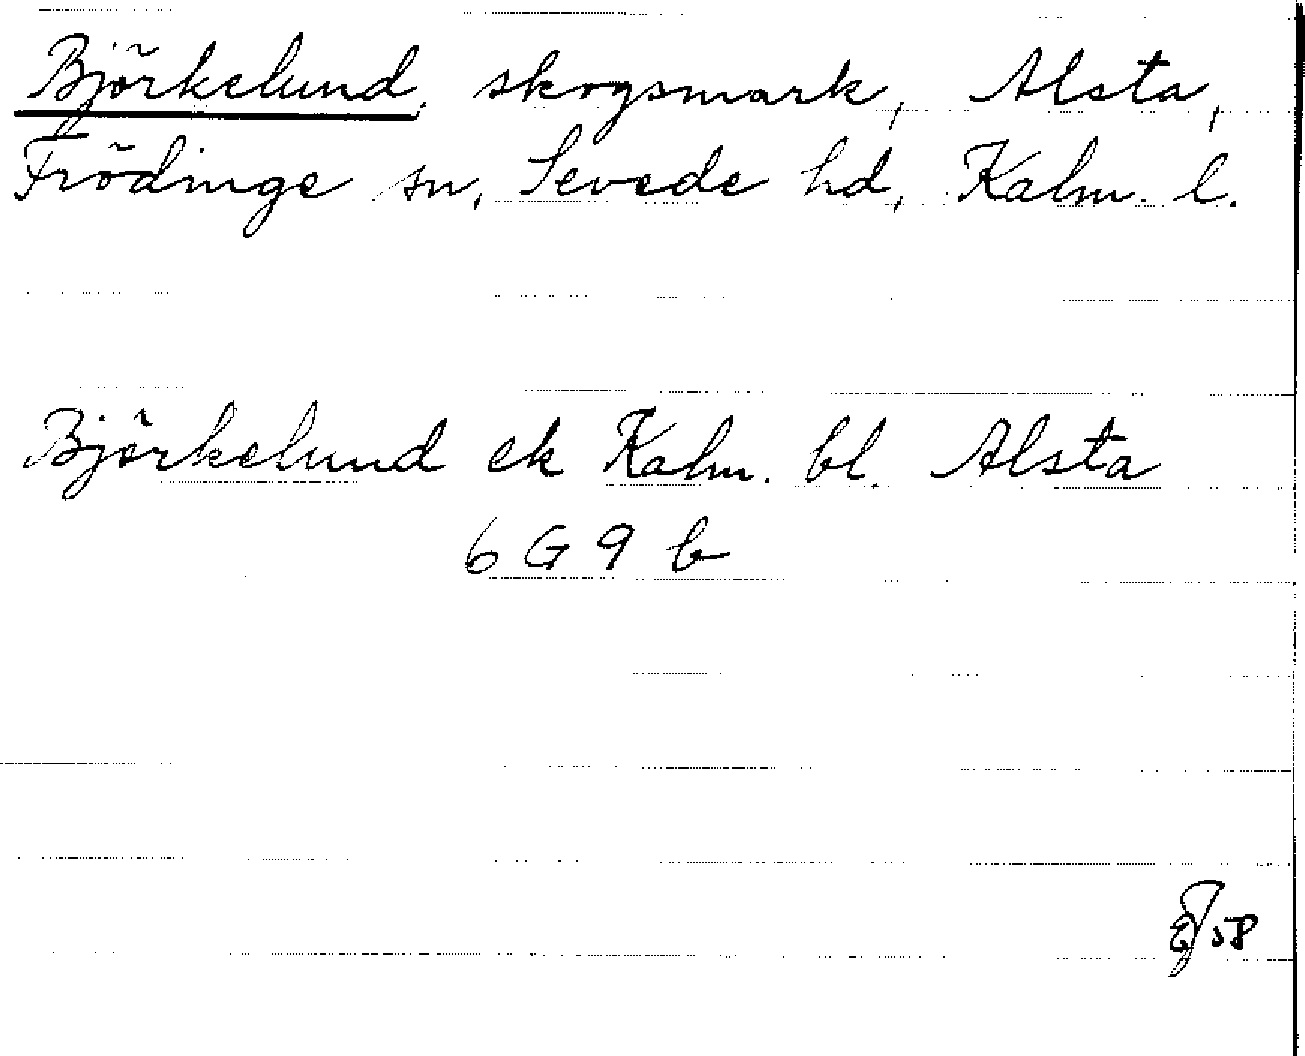 Björkelund, skogsmark, Alsta,
Frödinge sn, Sevede hd, Kalm. l.
Björkelund ek Kalm. bl. Alsta
6 G 9 b
58